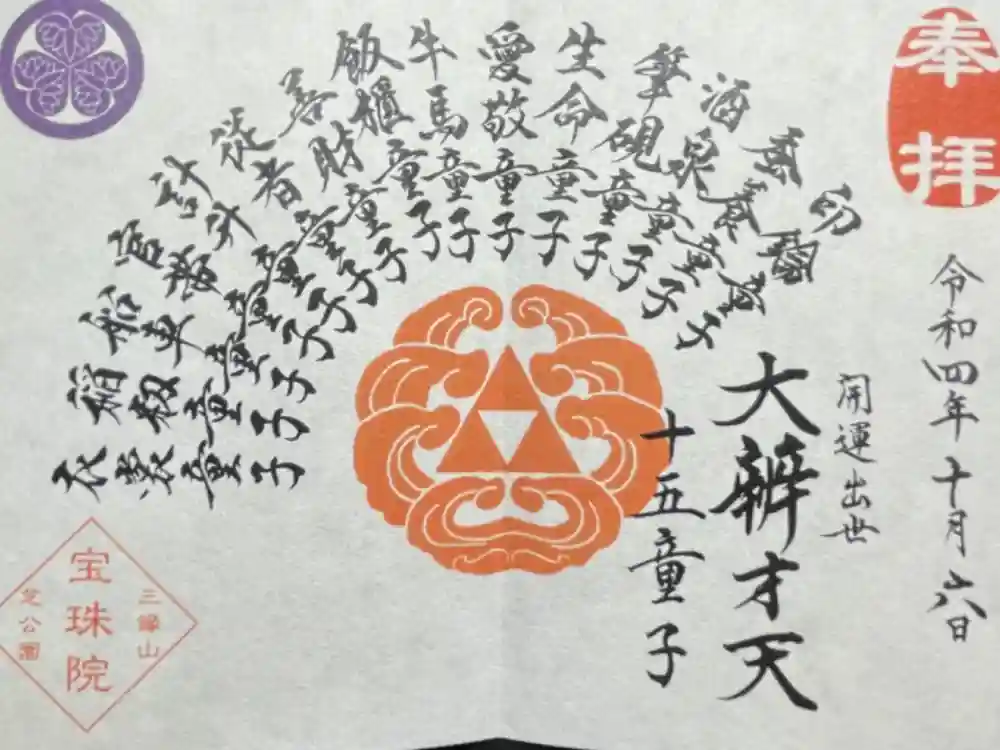 奉拝
令和四年十月六日
開運出世
大辨才天
十五童子
印鑰童子
蚕養童子
酒泉童子
筆硯童子
生命童子
愛敬童子
牛馬童子
飯櫃童子
善財童子
従者童子
計升童子
官帯童子
船車童子
稲籾童子
衣裳童子
三縁山
宝珠院
芝公園